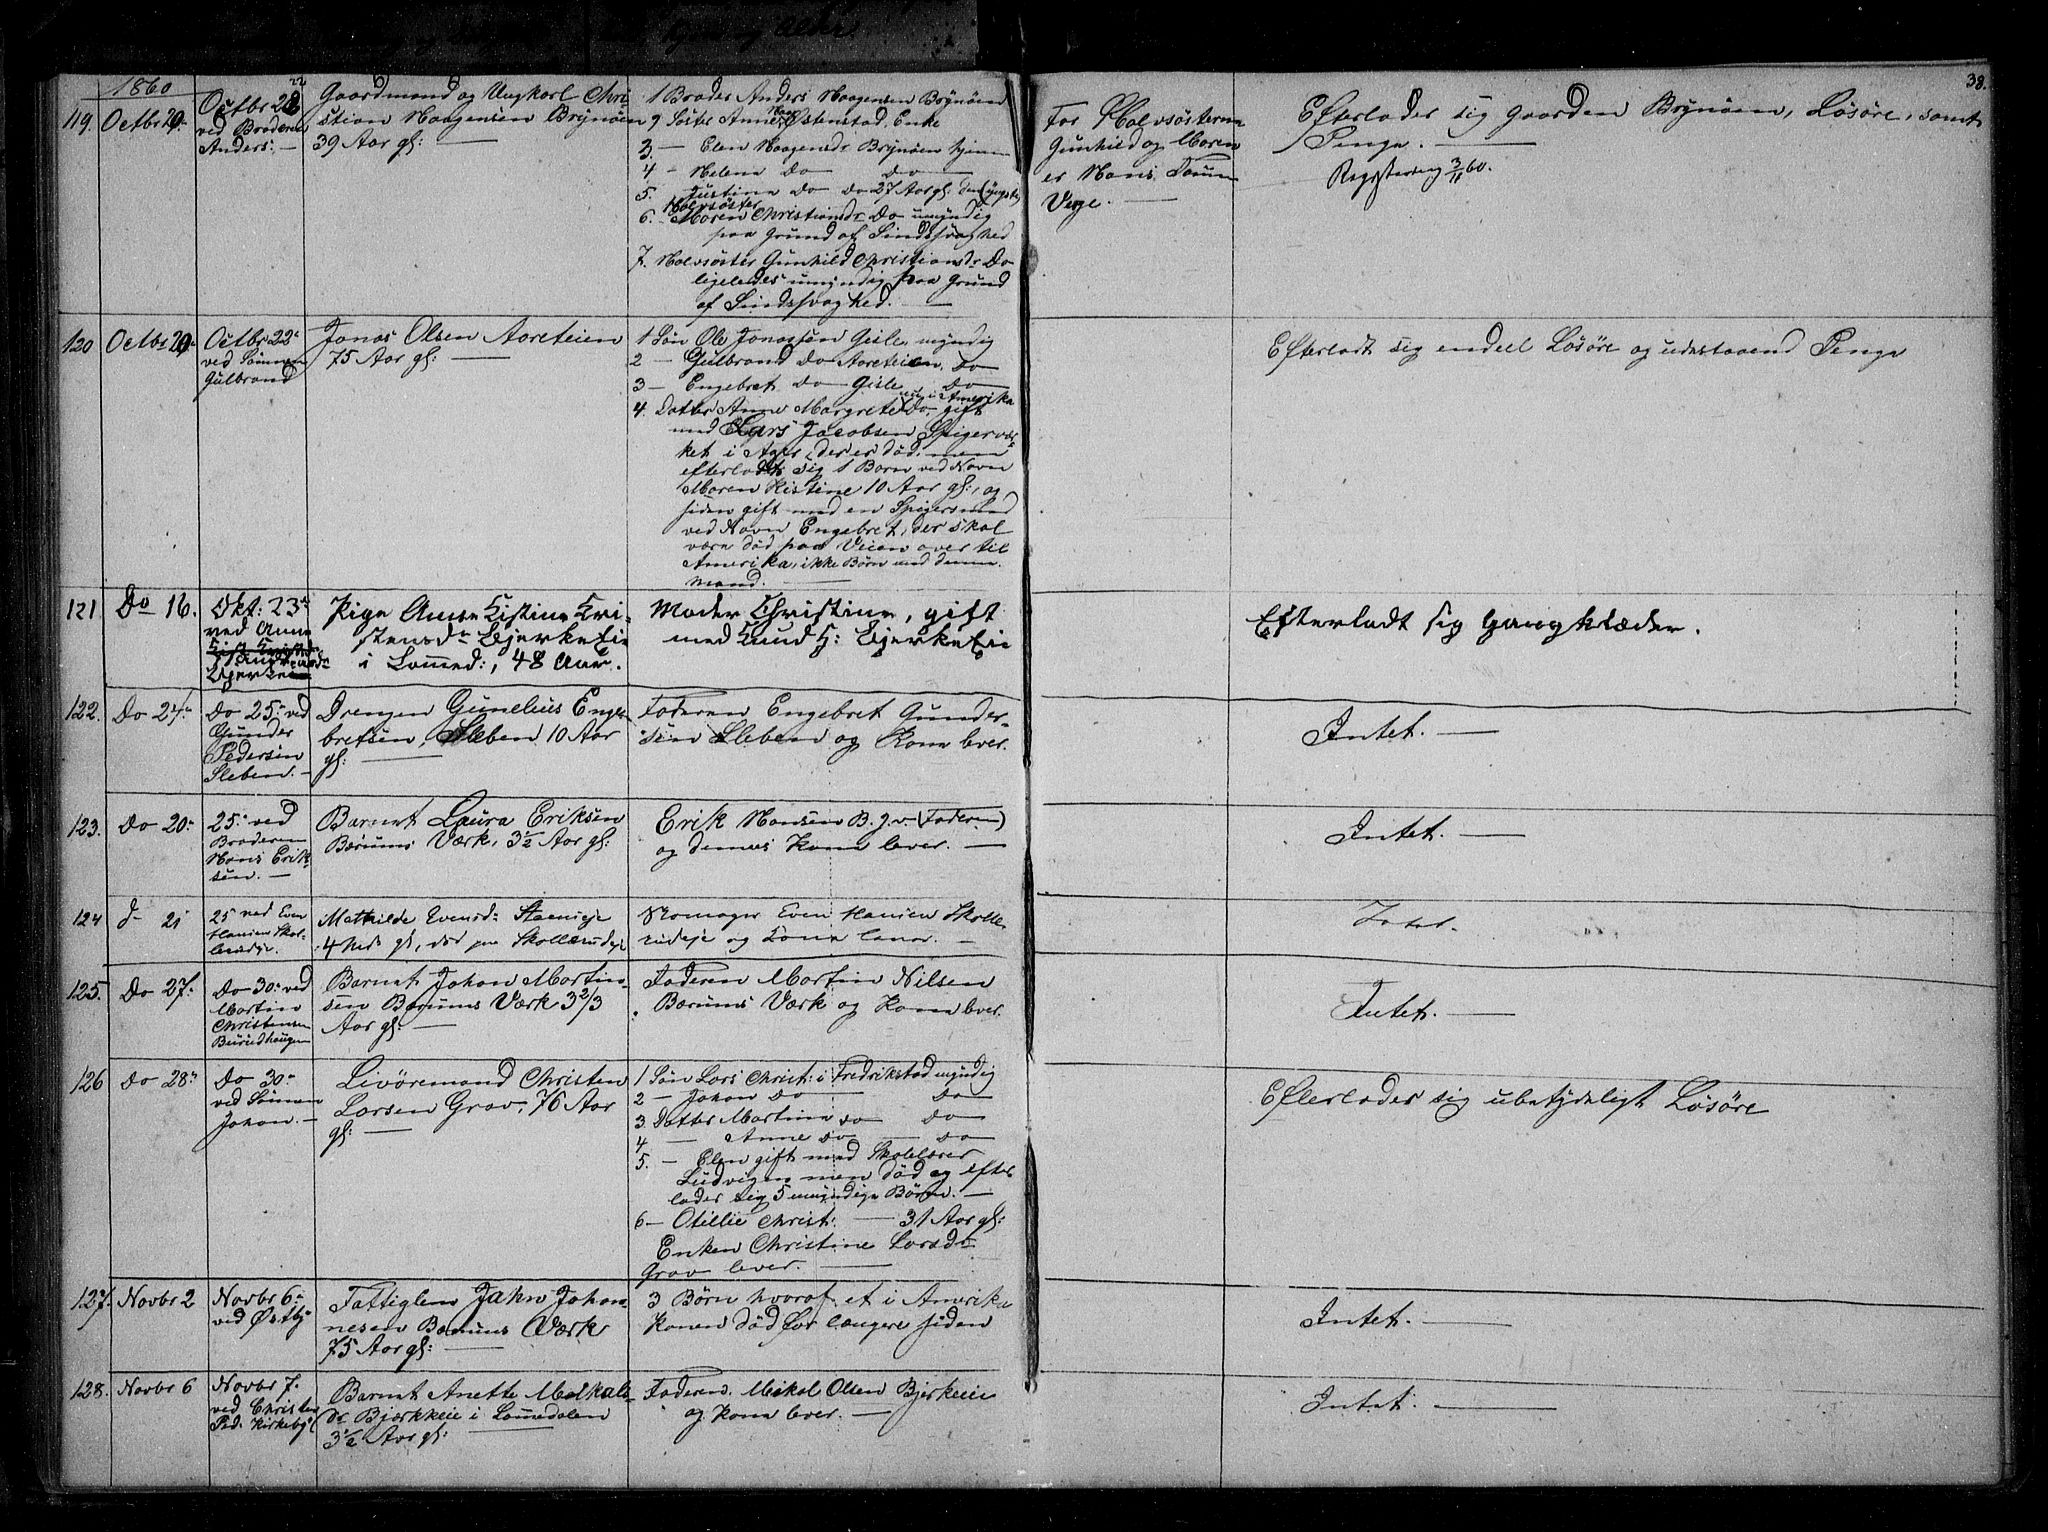 38.
1860
119. Octbr 29.
Octbr 22
ved Broderen
Anders. —
Gaardmand og Ungkarl Chri-
stian Haagensen Brynöen
39 Aar gl: —
1 Broder Anders Haagensen Brynöen
2 Söster Anne Østenstad, Enke
3. — Elen Haagensdr Brynöen hjemme
4 — Helene Do — Do —
5. Justine Do Do 27 Aar gl. den yngste
Halvsöster
6. — Maren Christiansdr Do umyndig
paa Grund af Sindssvaghed
7. Halvsöster Gunhild Christiansdr Do
ligeledes umyndig paa Grund
af Sindssvaghed. —
For Halvsöstrene
Gunhild og Maren
er Hans
Verge. —
Efterlader sig Gaarden Brynöen, Lösöre, samt
Penge. —
Registrering 3/11 60.
120 Octbr 20.
Octbr 22.
ved Sönnen
Gulbrand
Jonas Olsen Aareteien
75 Aar gl: —
1 Sön Ole Jonassen Gisle, myndig
2 — Gulbrand Do Aareteien, Do
3 — Engebret Do Gisle Do
4. Datter Anne Margrete Do, gift
ude i Amerika
med Lars Jacobsen Spigervær-
ket i Ager, der er död, men
efterlodt sig 1 Barn ved Navn
Maren Kistine 10 Aar gl:, og
siden gift med en Spigersmed
ved Navn Engebret, der skal
være död paa Veien over til
Amerika, ikke Börn med denne
Mand. —
Efterladt sig endeel Lösöre og udestaaend Penge
121 Do 16.
Okt: 23.
ved Anne
Pige Anne Kistine Kri-
stensdr Bjerkeeie
i Lomed:, 48 Aar.
Moder Christine, gift
med Knud H: Bjerkeeie
Efterladt sig Gangklæder.
122. Do 24.
Do 25. ved
Gunder
Pedersen
Sleben. —
Drengen Gunelius Enge-
bretsen, Sleben 10 Aar
gl: —
Faderen Engebret Gunder-
sen Sleben og Kone lever.
Intet. —
123. Do 20.
25. ved
Broderen
Hans Erik-
sen. —
Barnet Laura Eriksen
Bærums Værk, 3½ Aar gl:
Erik Hansen B. J. v. (Faderen)
og dennes Kone lever. —
Intet. —
124 d— 21
25 ved Even
Hansen Skol-
lerudeje.
Mathilde Evensdr
4 gl, död paa Skollerudeje
Even Hansen Skolle-
rudeje og Kone lever. —
Intet.
125. Do 27.
Do 30. ved
Martin
Christensen
Barnet Johan Martin-
sen Bærums Værk 3 2/3
Aar gl: —
Faderen Martin Nilsen
Bærums Værk og Kone lever.
Intet. —
126 Do 28.
Do 30.
ved Sönnen
Johan. —
Livöremand Christen
Larsen Grav, 76 Aar
gl: —
1 Sön Lars Christ: i Fredrikstad myndig
2 — Johan Do — Do —
3 Datter Martine Do Do —
4 — Anne Do — Do
5. — Elen gift med Skolelærer
Ludvigsen men död og efter-
lader sig 5 umyndige Börn. —
6 — Otillie Christ: — 31 Aar gl:
Enken Christine Larsdr
Grav lever. —
Efterlader sig ubetydeligt Lösöre
127. Novbr 2
Novbr 6.
ved Østby
Fattiglem Jahn Johan-
nesen Bærums Værk
75 Aar gl: —
3 Börn hvoraf et i Amerika
Konen död for længere siden
Intet. —
128. Novbr 6
Novbr 7.
ved Christen
Ped. Kirkeby
Barnet Anette
dr Bjerkkeie i Lommedalen
3½ Aar gl: —
Faderen. Mikal Olsen Bjerkeeie
og Kone lever. —
Intet. —